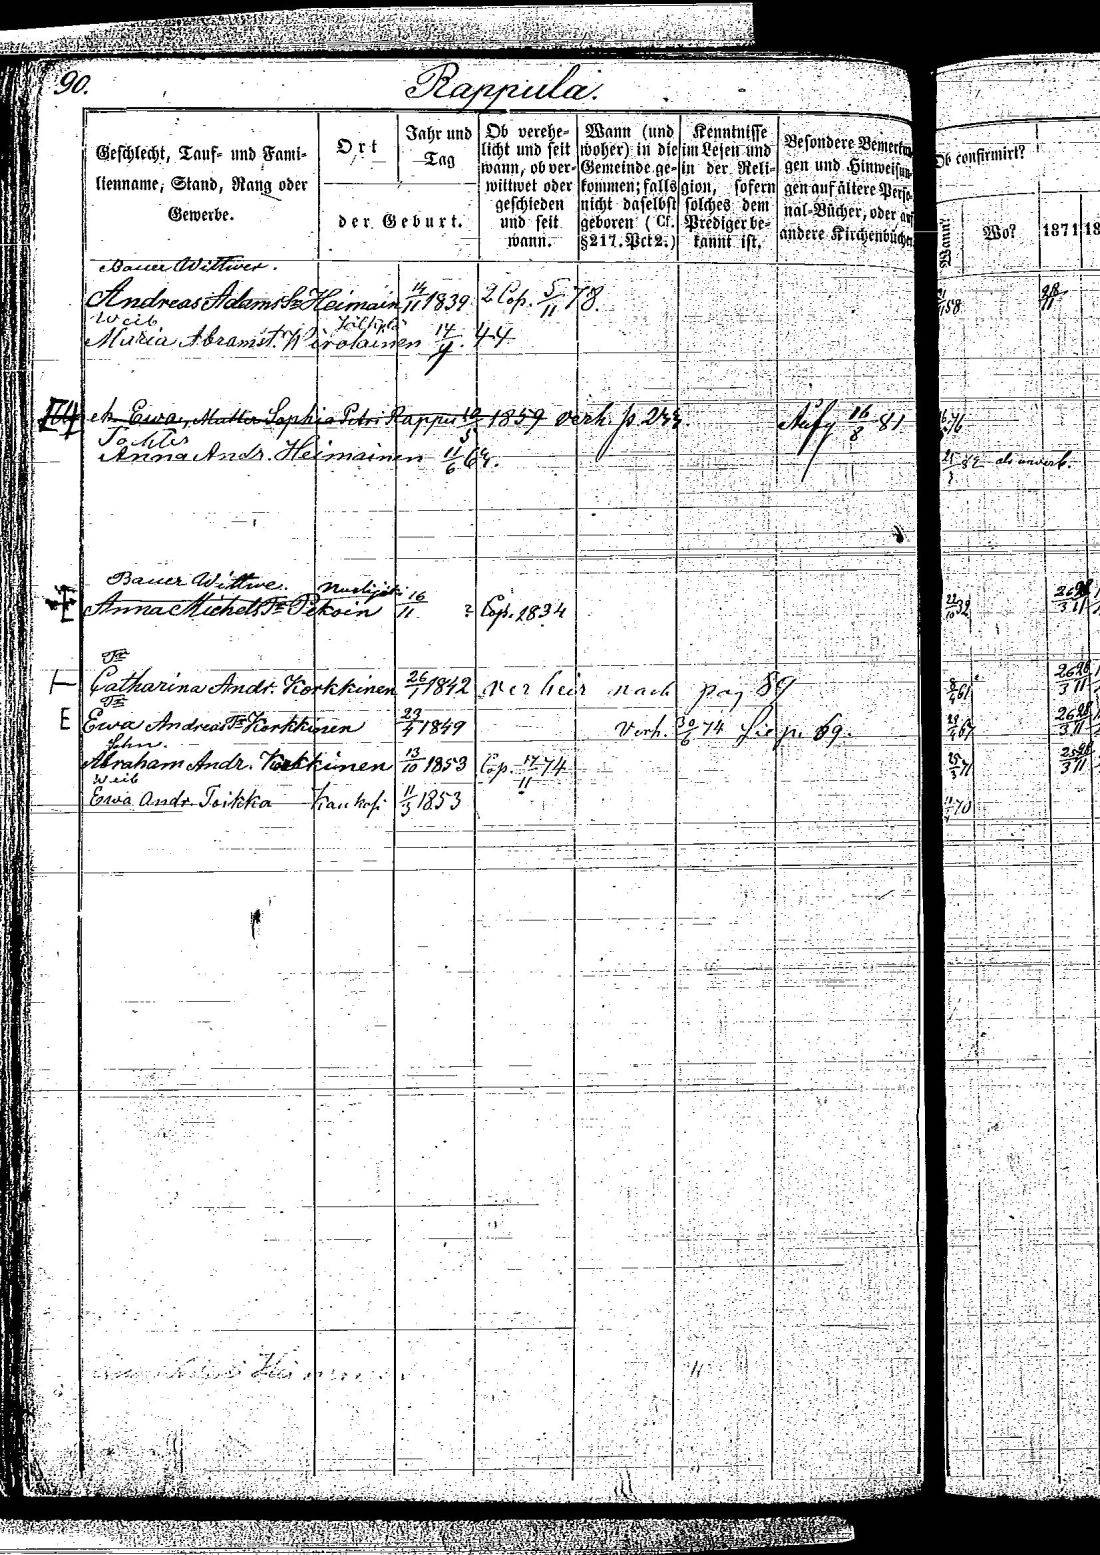 90.
Rappula.
Geschlecht, Tauf- und Fami-
lienname, Stand, Rang oder
Gewerbe.
Ort
der Geburt.
Jahr und
Tag
Ob verehe-
licht und seit
wann, ob ver-
wittwet oder
geschieden
und seit
wann.
Wann (und
woher) in die
Gemeinde ge-
kommen; falls
nicht daselbst
geboren (Cf.
§ 217. Pct 2.)
Kenntnisse
im Lesen und
in der Reli-
gion, sofern
solches dem
Prediger be-
kannt ist.
Besondere Bemerkun-
gen und Hinweisun-
gen auf ältere Perso-
nal-Bücher, oder auf
andere Kirchenbücher
Ob confirmirt?
Wann?
Wo?
1871
18
Bauer Wittwer.
Andreas Adams Sn Heimain 14/11 1839 2 Cop. 5/11 78.
Weib
Maria Abramst. Kirolainen 14/9. 44
Ewa, Mutter Sophia Petri Rappu 10/5 1859 verh. p. 16/8 81
Tochter
Anna Andr. Heimainen 11/6 64.
Bauer Wittwe.
Anna Michels Tr Pekoin 16/11 ? Cop. 1834
Tr
Catharina Andr. Korkkinen 26/1 1842 verheir nach pag 89
Tr
Ewa Andreas Tr Korkkinen 23/4 1849 Verh. 30/6 74 Siep. 69.
Sohn.
Abraham Andr. Korkkinen 13/10 1853 Cop. 17/11 74
Weib
Ewa Andr. Toikka Kaukosi 11/3 1853